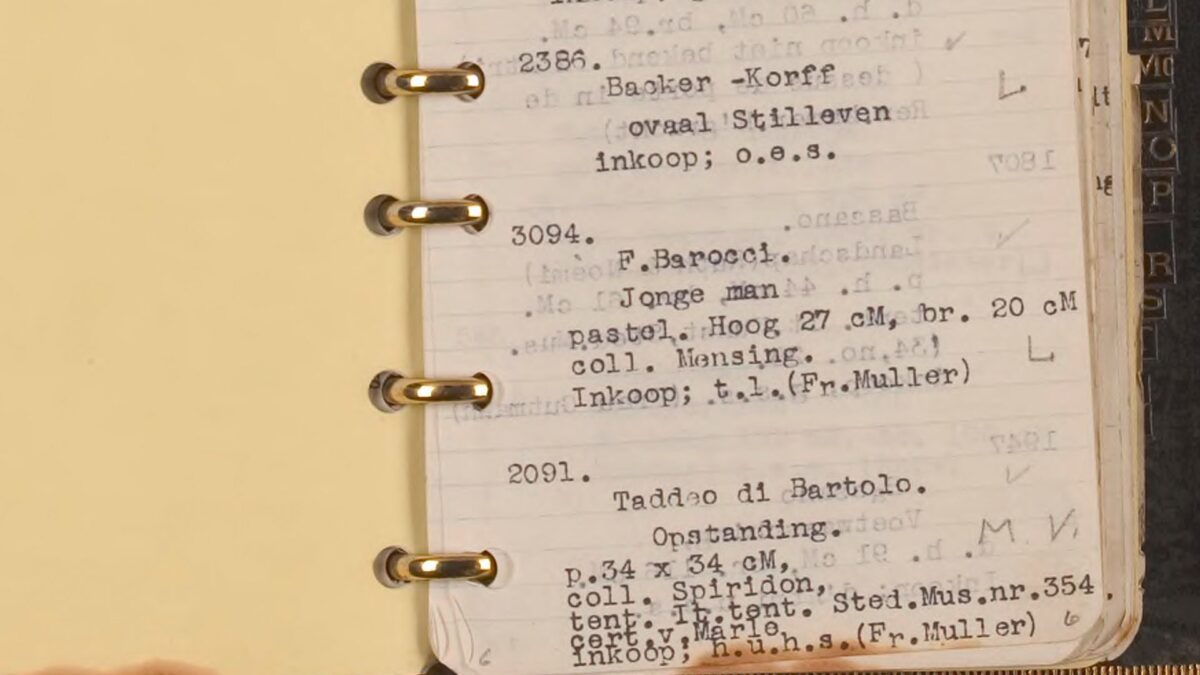 2386.
Backer -Korff
L
ovaal Stilleven
inkoop; o.e.s.
3094.
F.Barocci.
Jonge man
pastel. Hoog 27 cM, br. 20 cM
coll. Mensing.
L
Inkoop; t.l.(Fr.Muller)
2091.
Taddeo di Bartolo.
Opstanding.
M V.
p.34 x 34 cM,
coll. Spiridon,
tent. It.tent. Sted.Mus.nr.354.
cert.v.Marle
inkoop; h.u.h.s.(Fr.Muller)
6
6
L
M
N
O
P
R
S
T